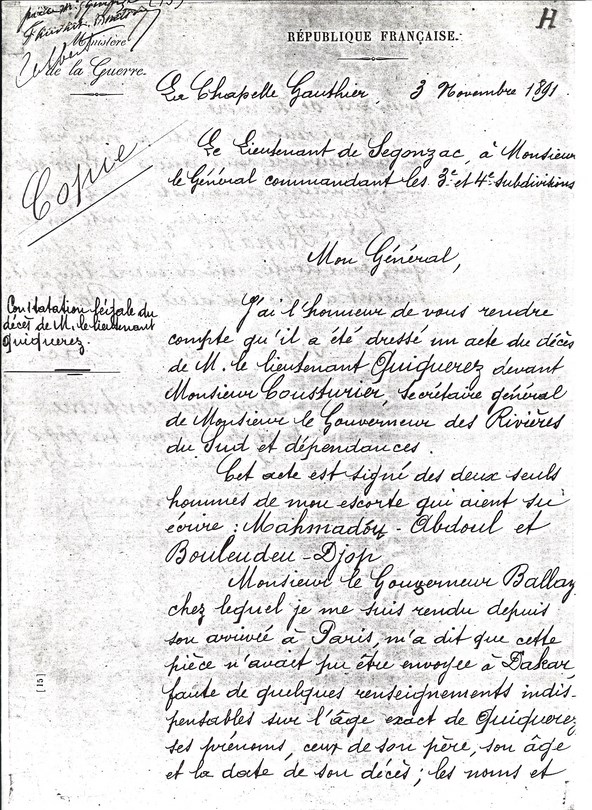 H
RÉPUBLIQUE FRANÇAISE.
Ministère
de la Guerre.
La Chapelle Gauthier, 3 Novembre 1891.
Copie
Le Lieutenant de Segonzac, à Monsieur
le Général commandant les 3e et 4e Subdivisions
Mon Général,
Constatation légale du
décès de M. le lieutenant
Quiquerez.
J'ai l'honneur de vous rendre
compte qu'il a été dressé un acte du décès
de M. le lieutenant Quiquerez devant
Monsieur Cousturier, secrétaire général
de Monsieur le Gouverneur des Rivières
du Sud et dépendances.
Cet acte est signé des deux seuls
hommes de mon escorte qui aient su
écrire : Mahmadou - Abdoul et
Bouleudeu - Djop
Monsieur le Gouverneur Ballay
chez lequel je me suis rendu depuis
son arrivée à Paris, m'a dit que cette
pièce n'avait pu être envoyée à Dakar,
faute de quelques renseignements indis-
pensables sur l'âge exact de Quiquerez
ses prénoms, ceux de son père, son âge
et la date de son décès ; les noms et
[15]